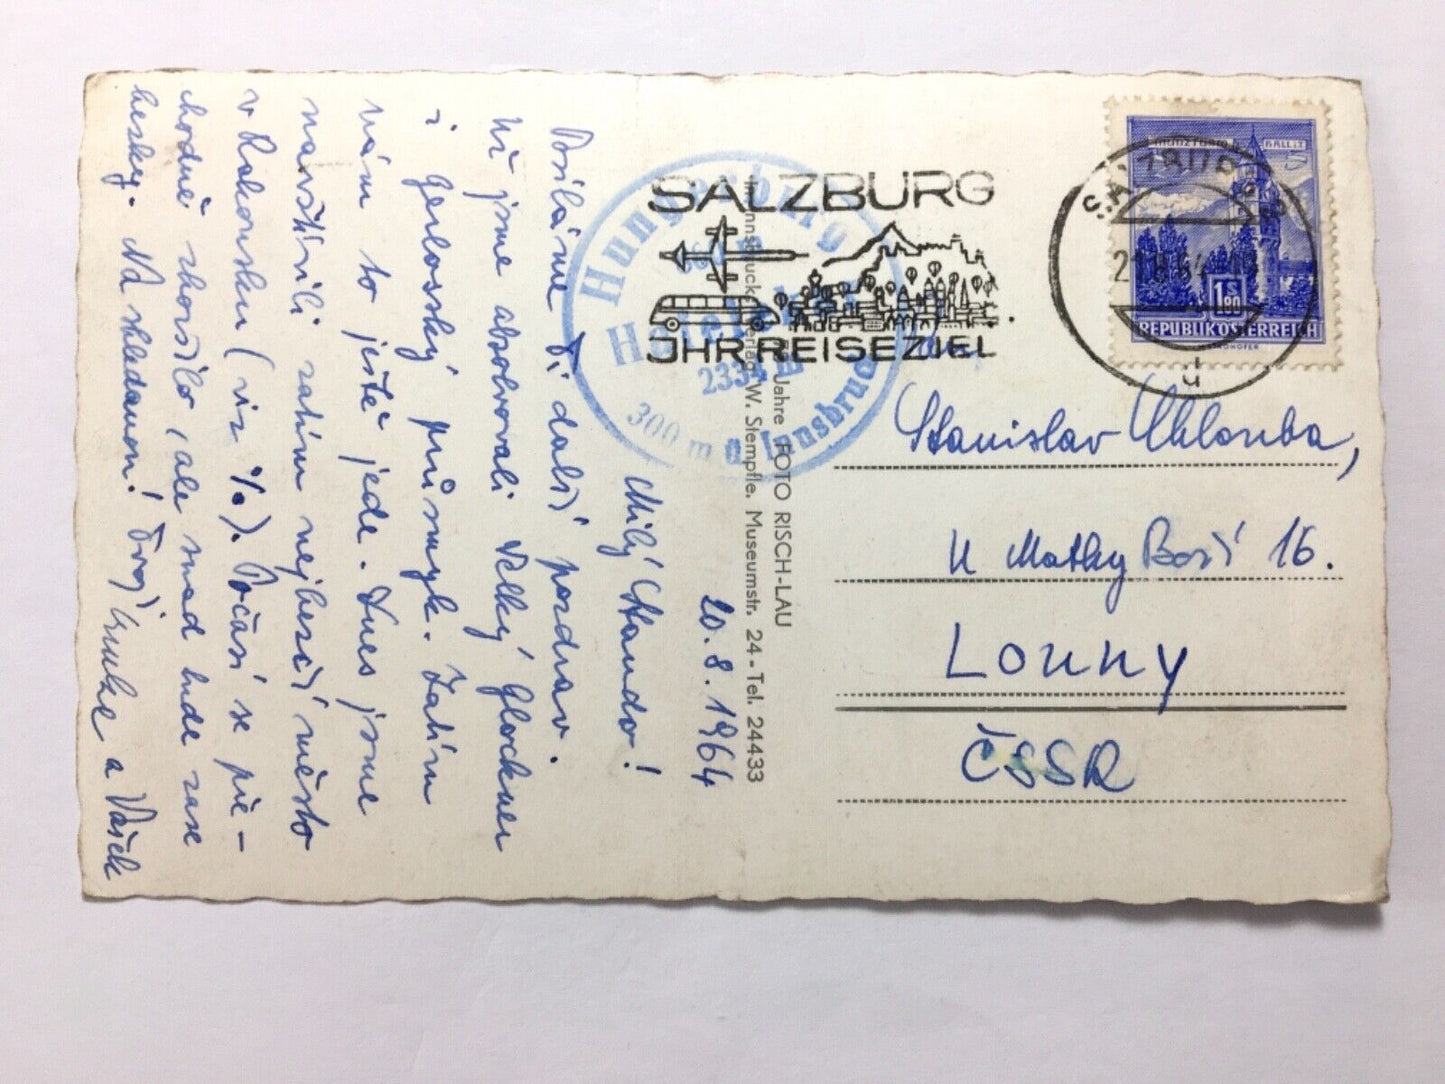 20.8.1964
Milý Stando!
Posíláme Ti další pozdrav.
Už jsme absolvovali Velký Glockner
i gerlosský průsmyk. Zatím
nám to ještě jede. Dnes jsme
navštívili zatím nejhezčí město
v Rakousku (viz %). Počasí se pře-
chodně zhoršilo, ale snad bude zase
hezky. Na shledanou! Tvoji a Vašek
SALZBURG
JHR REISEZIEL
Hungerburg
860 m
2334 m
300 m ü. Innsbruck
Innsbruck Verlag W. Stempfle, Museumstr. 24 - Tel. 24433
Jahre FOTO RISCH-LAU
SALZBURG
1.80
REPUBLIK ÖSTERREICH
Stanislav Chlouba,
U Matky Boží 16.
LOUNY
ČSSR